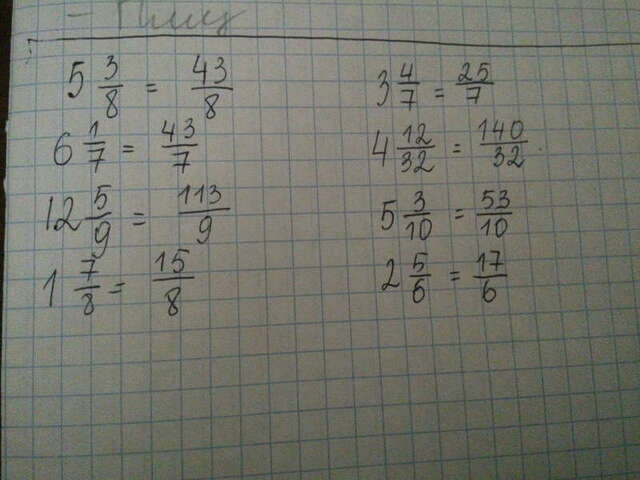 5 3/8 = 43/8
6 1/7 = 43/7
12 5/9 = 113/9
1 7/8 = 15/8
3 4/7 = 25/7
4 12/32 = 140/32
5 3/10 = 53/10
2 5/6 = 17/6